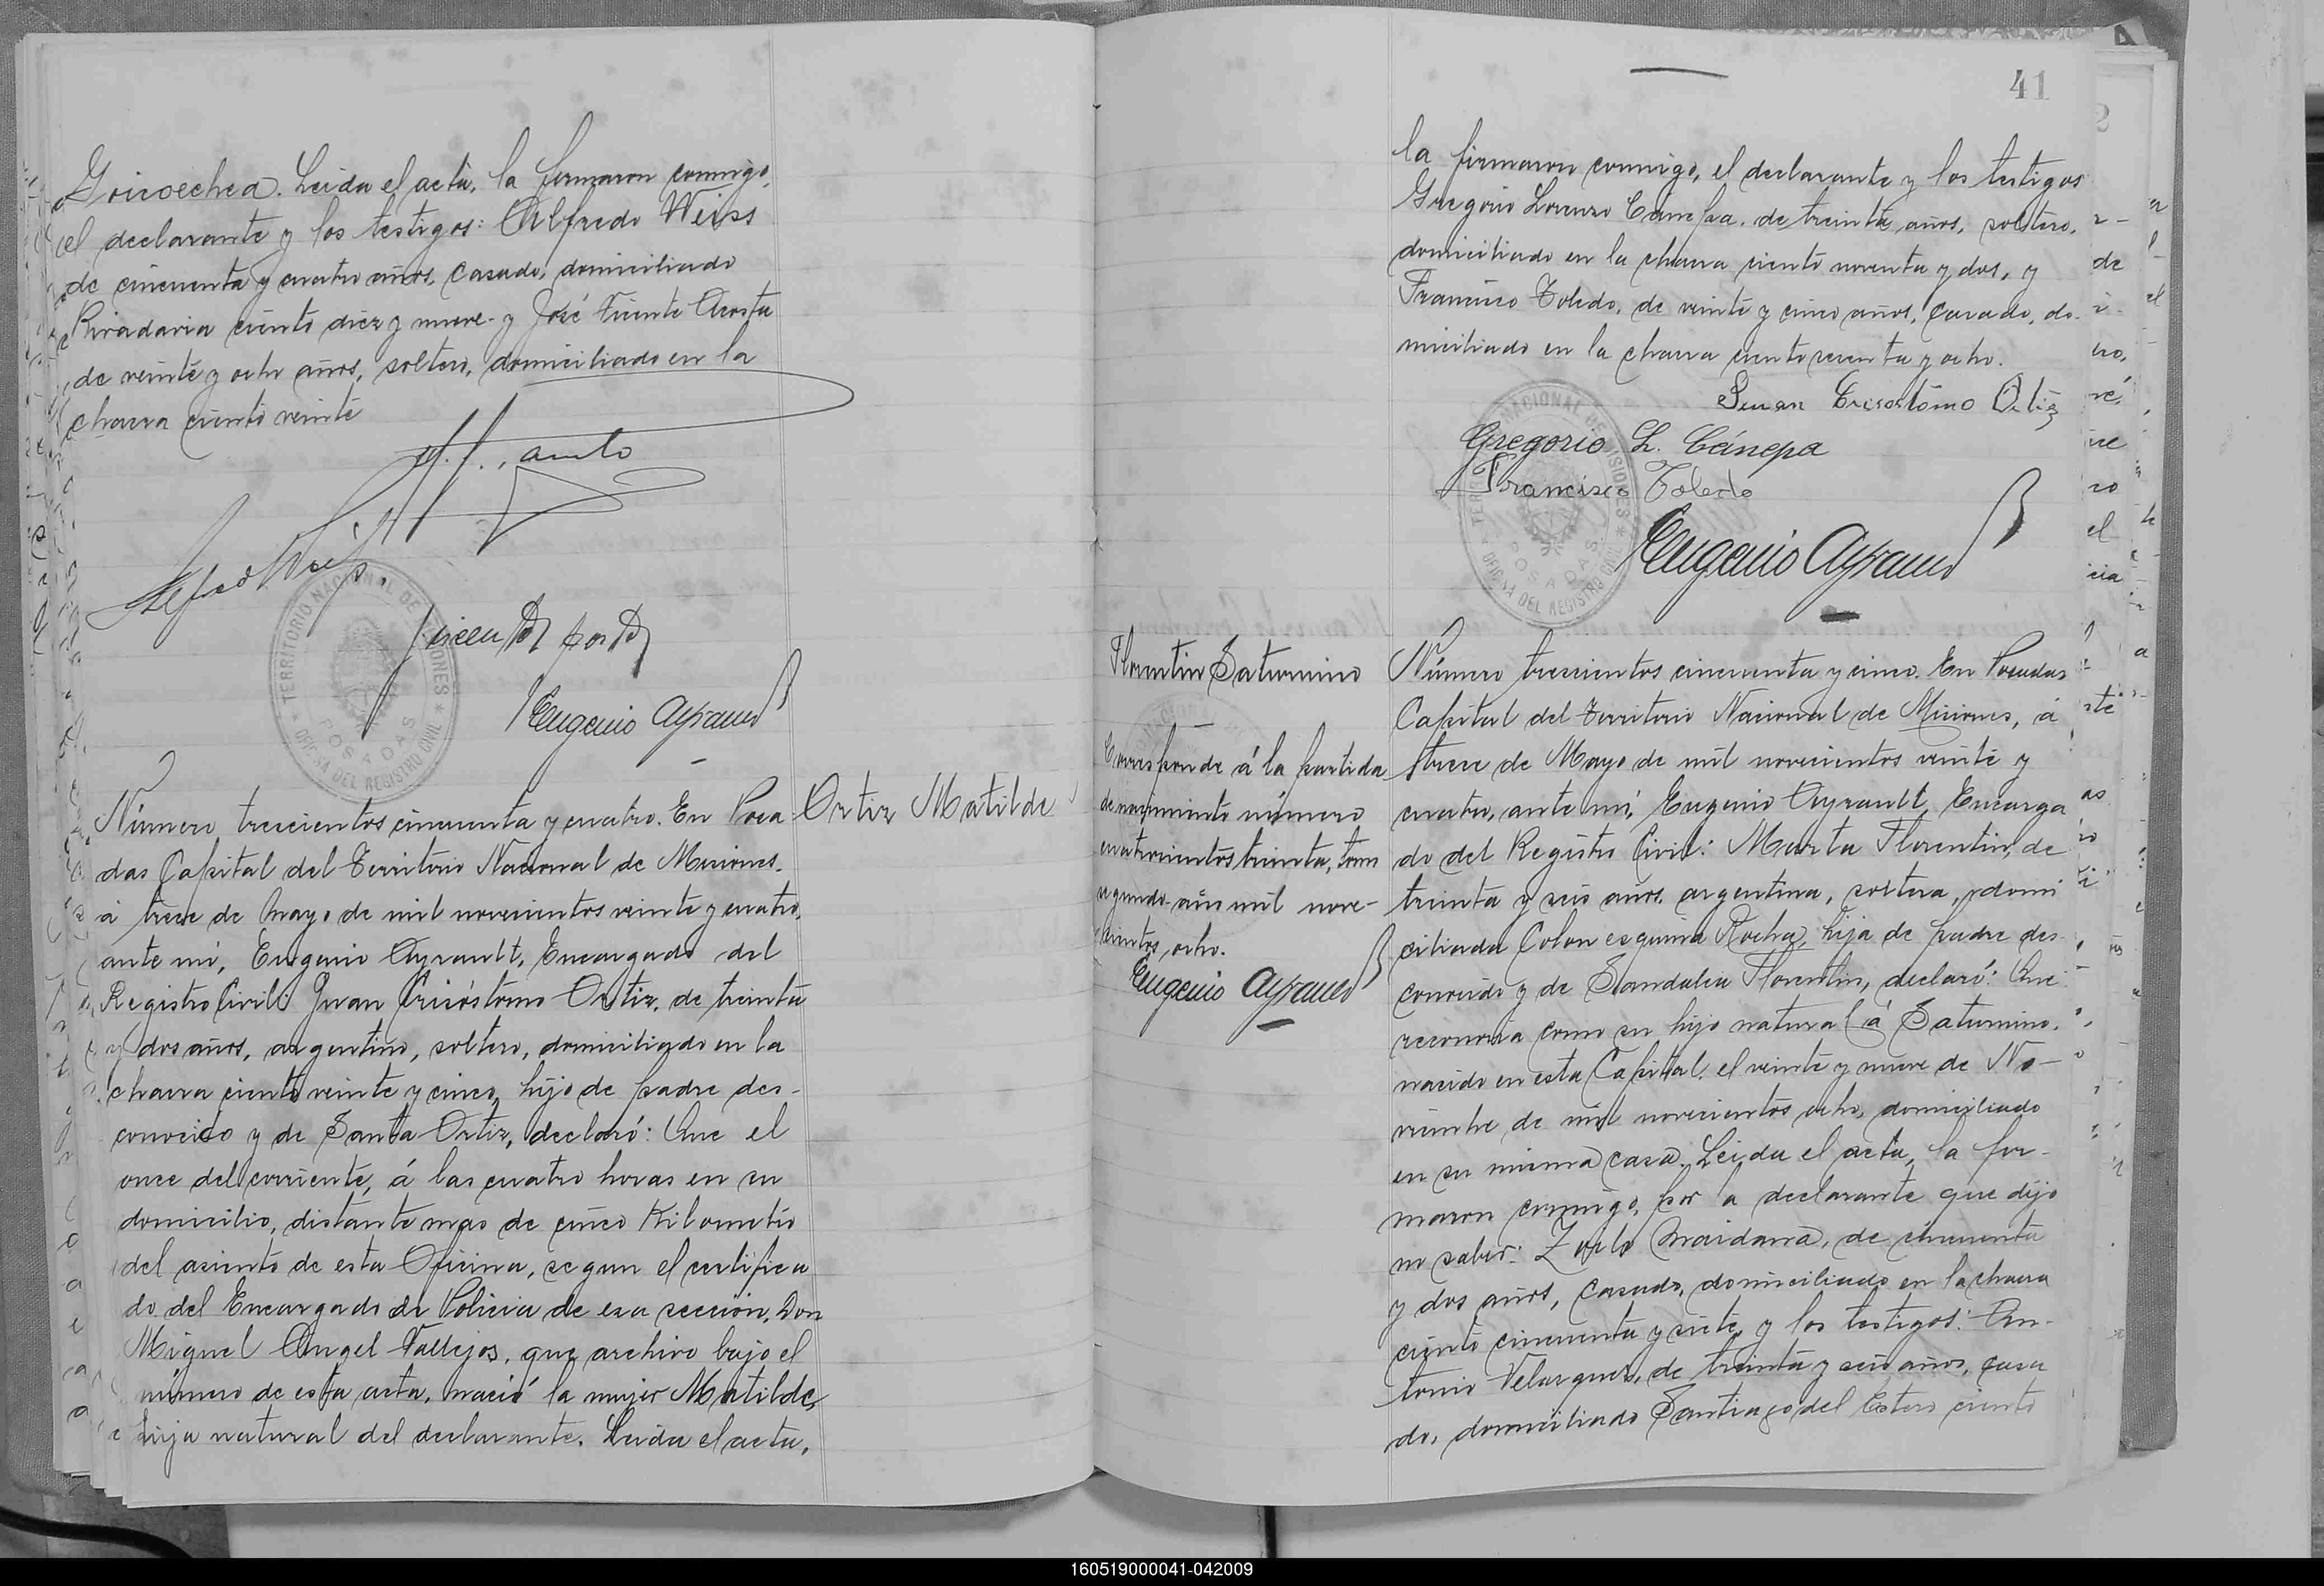 Goicoechea. Leida el acta, la firmaron conmigo,
el declarante y los testigos: Alfredo Weiss
de cincuenta y cuatro años, casado, domiciliado
Rivadavia ciento diez y nueve y José Vicente Acosta
de veinte y ocho años, soltero, domiciliado en la
chacra ciento veinte
TERRITORIO NACIONAL DE MISIONES
POSADAS
OFICINA DEL REGISTRO CIVIL
Eugenio Ayrault
Ortiz Matilde
Número trescientos cincuenta y cuatro. En Posa
das Capital del Territorio Nacional de Misiones,
á trece de Mayo de mil novecientos veinte y cuatro,
ante mí, Eugenio Ayrault, Encargado del
Registro Civil: Juan Crisóstomo Ortiz, de treinta
y dos años, argentino, soltero, domiciliado en la
chacra ciento veinte y cinco, hijo de padre des-
conocido y de Santa Ortiz, declaró: Que el
once del corriente, á las cuatro horas en su
domicilio, distante mas de cinco Kilometros
del asiento de esta Oficina, segun el certifica
do del Encargado de Policia de esa sección, Don
Miguel Angel Vallejos, que archivo bajo el
número de esta acta, nació la mujer Matilde,
hija natural del declarante. Leida el acta,
41
la firmaron conmigo, el declarante y los testigos
Gregorio Lorenzo Cánepa, de treinta años, soltero,
domiciliado en la chacra ciento noventa y dos, y
Francisco Toledo, de veinte y cinco años, casado, do-
miciliado en la chacra ciento sesenta y ocho.
Juan Crisostomo Ortiz
Gregorio L. Cánepa
Francisco Toledo
TERRITORIO NACIONAL DE MISIONES
POSADAS
OFICINA DEL REGISTRO CIVIL
Eugenio Ayrault
Florentin Saturnino
Corresponde á la partida
de nacimiento número
cuatrocientos treinta, tomo
segundo año mil nove-
cientos ocho.
Eugenio Ayrault
Número trescientos cincuenta y cinco. En Posadas
Capital del Territorio Nacional de Misiones, á
trece de Mayo de mil novecientos veinte y
cuatro, ante mí, Eugenio Ayrault, Encarga
do del Registro Civil: Marta Florentin, de
treinta y seis años, argentina, soltera, domi
ciliada Colon esquina Rocha, hija de padre des-
conocido y de Sandalia Florentin, declaró: Que
reconocia como su hijo natural á Saturnino,
nacido en esta Capital, el veinte y nueve de No-
viembre de mil novecientos ocho, domiciliado
en su misma casa. Leida el acta, la fir-
maron conmigo, por la declarante que dijo
no saber: Zoilo Maidana, de cincuenta
y dos años, casado, domiciliado en la chacra
ciento cincuenta y siete y los testigos: An-
tonio Velasquez, de treinta y seis años, casa
do, domiciliado Santiago del Estero ciento
160519000041-042009